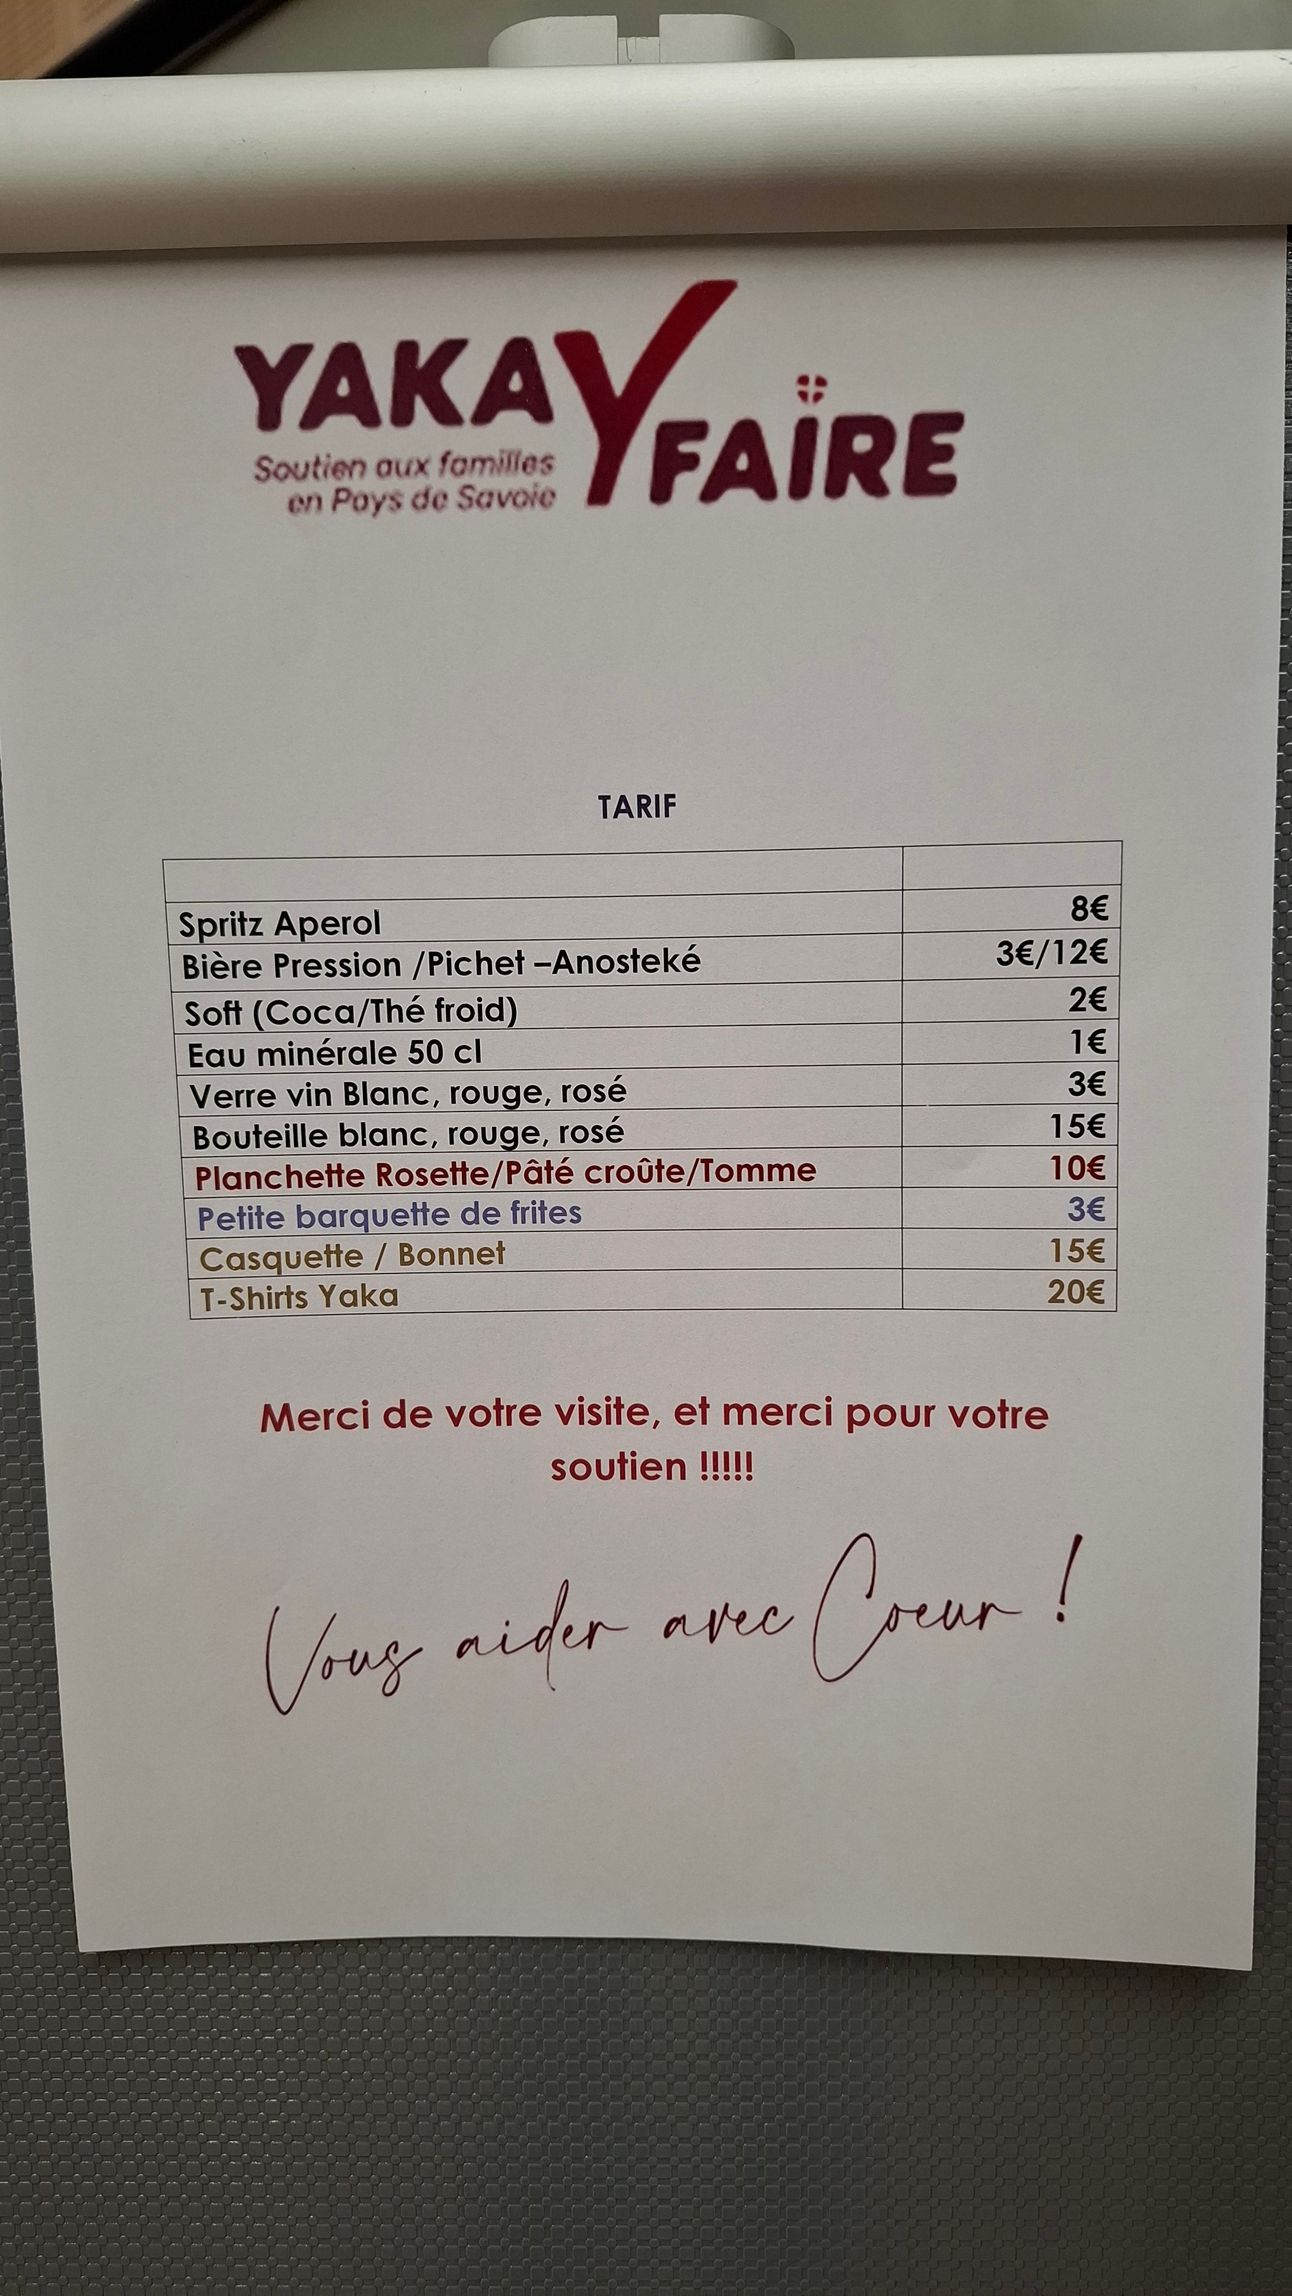 YAKA Y FAÏRE
Soutien aux familles
en Pays de Savoie
TARIF
Spritz Aperol 8€
Bière Pression /Pichet –Anosteké 3€/12€
Soft (Coca/Thé froid) 2€
Eau minérale 50 cl 1€
Verre vin Blanc, rouge, rosé 3€
Bouteille blanc, rouge, rosé 15€
Planchette Rosette/Pâté croûte/Tomme 10€
Petite barquette de frites 3€
Casquette / Bonnet 15€
T-Shirts Yaka 20€
Merci de votre visite, et merci pour votre
soutien !!!!!
Vous aider avec Coeur !